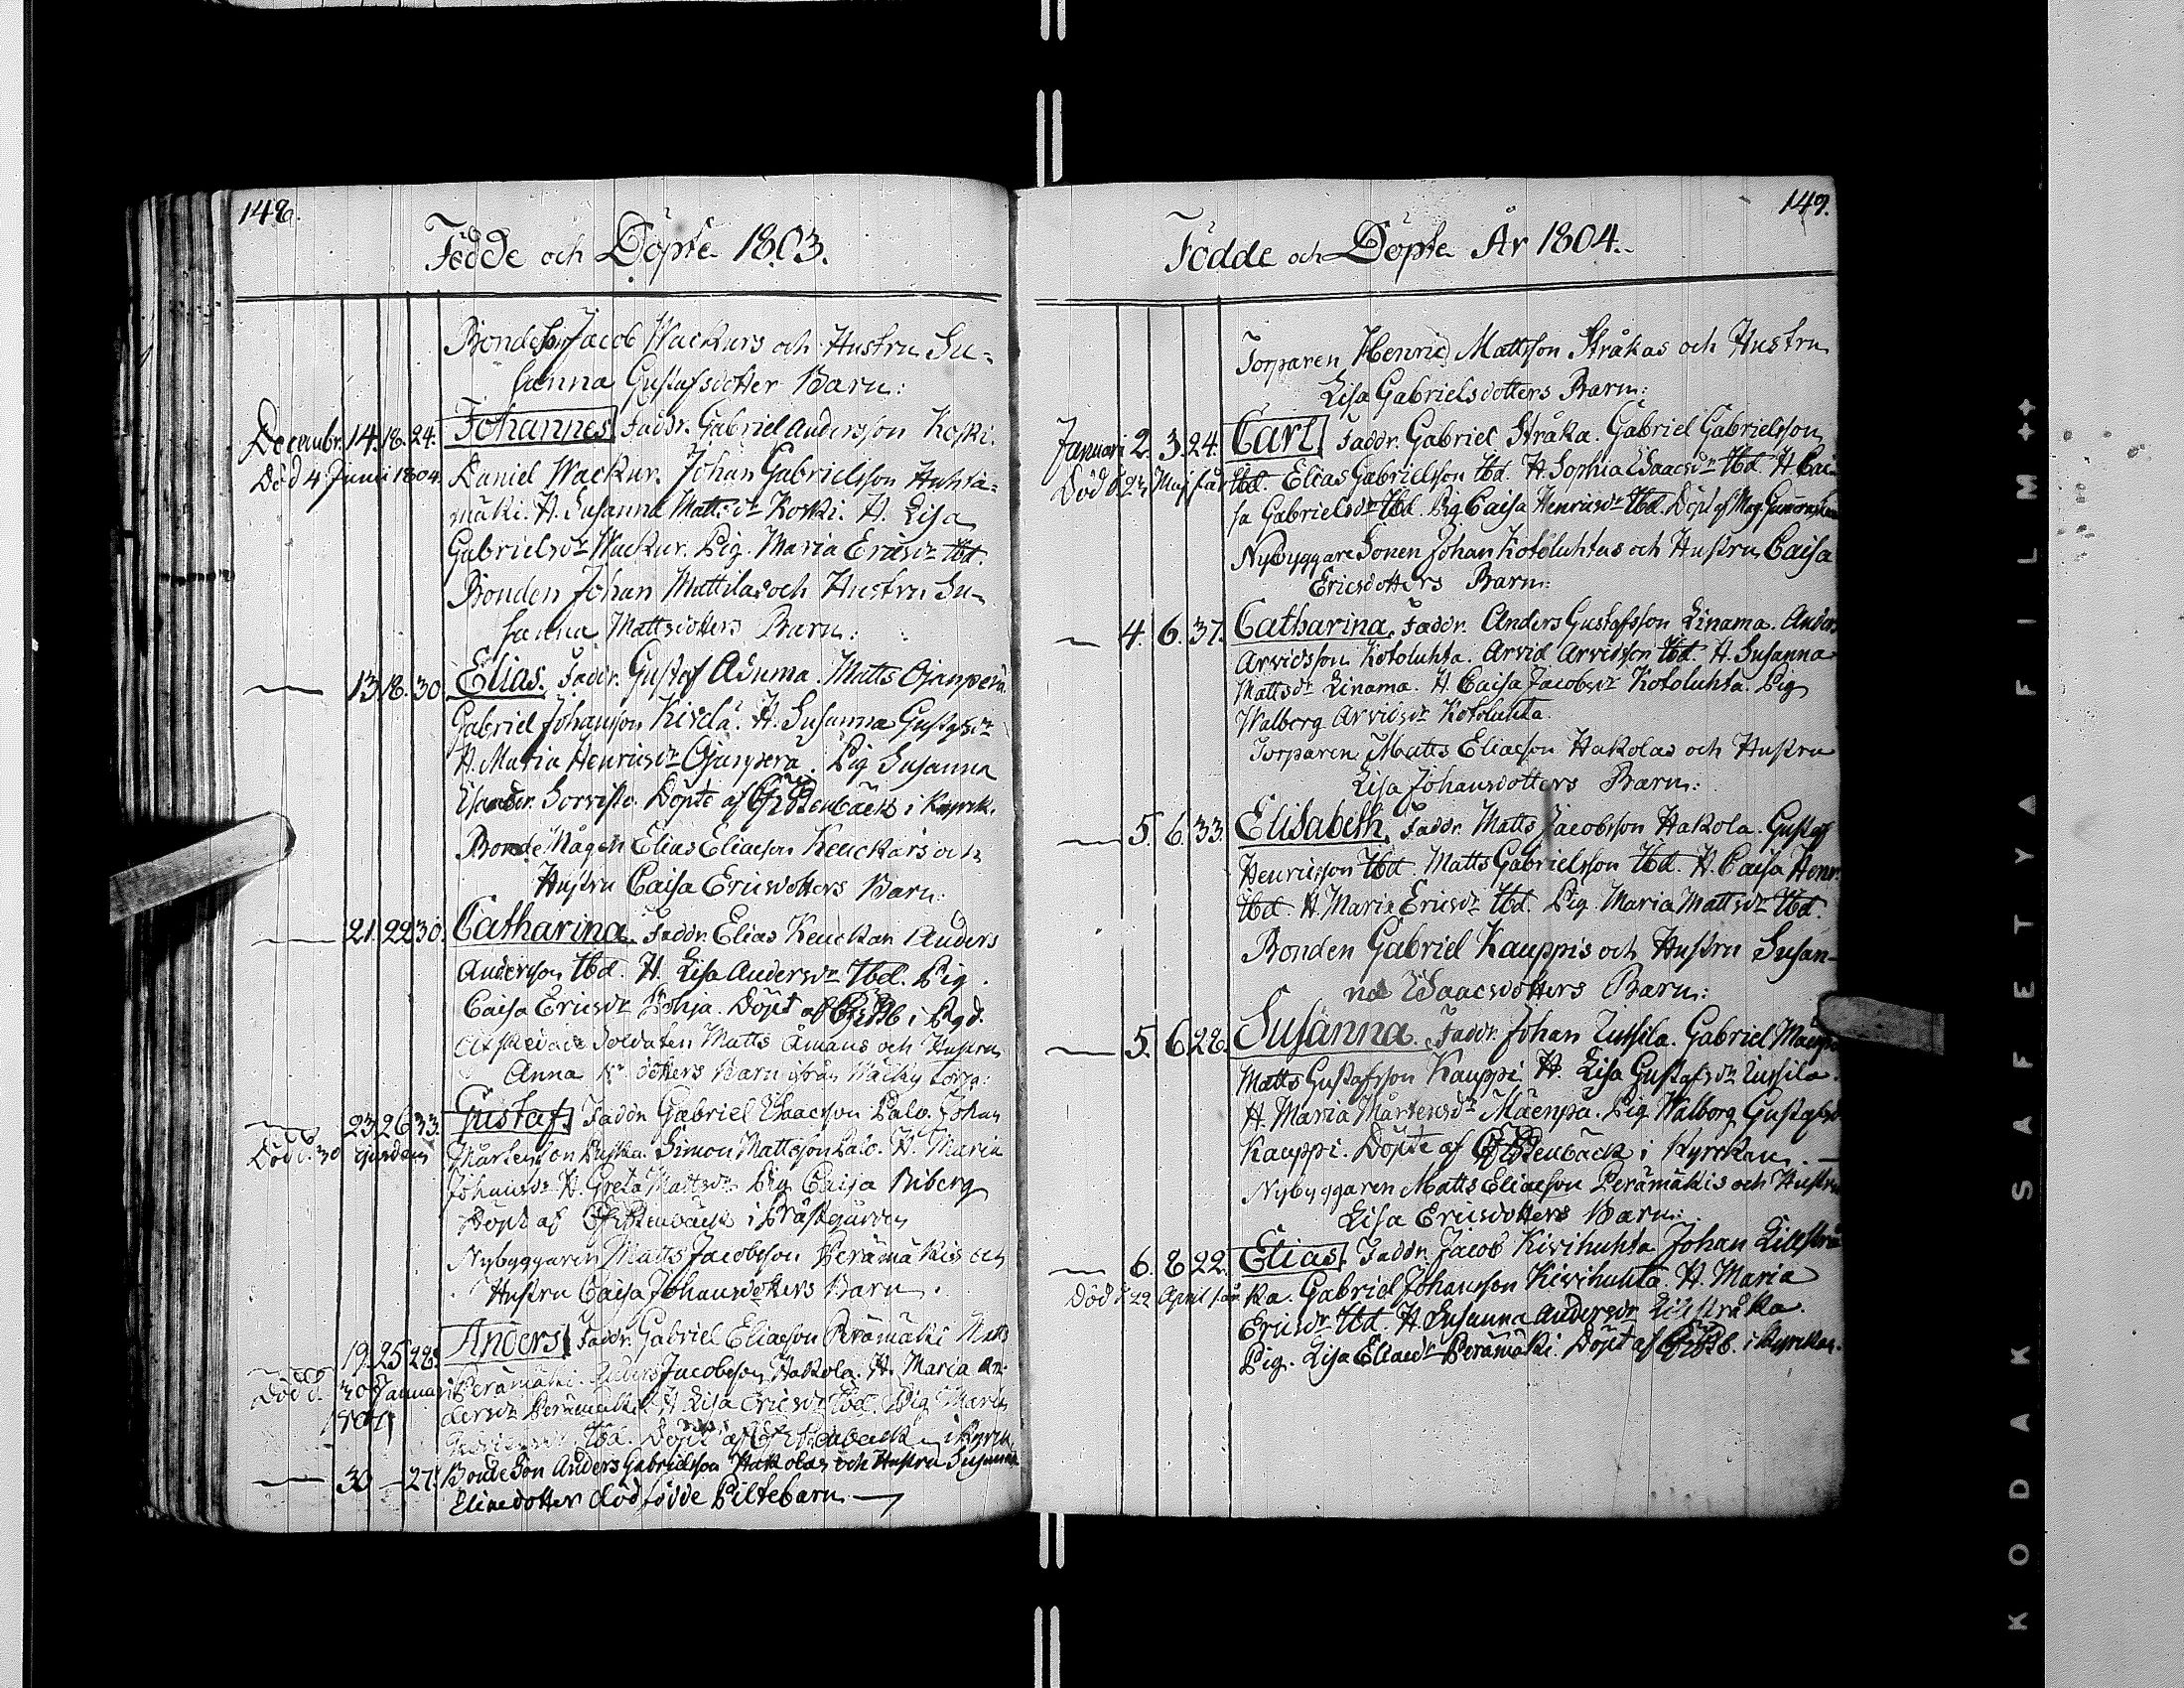 148.
Födde och Döpte 1803.
BondeSon Jacob Wackurs och Hustru Su=
sanna Gustafsdotter Barn:
Decembr. 14. 18. 24. Johannes Faddr. Gabriel Andersson Koski.
Död 4 Junii 1804. Daniel Wackur. Johan Gabrielsson Huhta=
mäki. H. Susanna Mattsdr Koski. H. Lisa
Gabrielsdr Wackur. Pig. Maria Ericsdr Ibd.
Bonden Johan Mattilas och Hustru Su=
sanna Mattsdotters Barn:
— 13 18. 30 Elias. Faddr. Gustaf Asuma. Matts Ojanperä
Gabriel Johansson Kivelä. H. Susanna Gustafsdr
H. Maria Henricsdr Ojanperä. Pig Susanna
Sorvisto. Döpte af Estenbäck i Kyrk.
Bonde Mågen Elias Eliæson Keuckars och
Hustru Caisa Ericsdotters Barn:
— 21. 22 30. Catharina. Faddr. Elias Keuckar Anders
Andersson Ibd. H. Lisa Andersdr Ibd. Pig.
Caisa Ericsdr Pohja. Döpt af i Pgd.
Afskedade Soldaten Matts Åmans och Hustru
Anna dotters Barn ifrån
— 23. 26 33. Gustaf. Faddr. Gabriel Isaacsson Palo. Johan
Död d. 30 Mårtensson Simon Mattsson Palo. H. Maria
Johansdr H. Greta Mattsdr Pig Caisa Siberg
Döpt af Estenbäck i Prästgården
Nybyggaren Matts Jacobsson Perämäkis och
Hustru Caisa Johansdotters Barn.
19. 25 28. Anders Faddr. Gabriel Eliæson Perämäki Matts
Död d. 30 Januarii Perämäki. Anders Jacobsson Hakola. H. Maria An=
1804 dersdr Perämäki. H Lisa Ericsdr Ibd. Pig Maria
Ibd. Döpt af Estenbäck i Kyrk.
— 30 — 27. BondeSon Anders Gabrielsson Hakolas och Hustru Susanna
Eliæ dotter dödfödde Piltebarn —
149.
Födde och Döpte År 1804.
Torparen Henric Mattsson Stråkas och Hustru
Lisa Gabrielsdotters Barn:
Januari 2. 3. 24. Carl. Faddr. Gabriel Stråka. Gabriel Gabrielsson
Död d 23 Maj s. år Ibd. Elias Gabrielsson Ibd. H Sophia Isaacsdr Ibd. H Cai=
sa Gabrielsdr Ibd. Pig Caisa Henricsdr Ibd. Döpt af Mag.
Nybyggare Sonen Johan Kotoluhtas och Hustru Caisa
Ericsdotters Barn:
— 4. 6. 37. Catharina. Faddr. Anders Gustafsson Linama. Anders
Arvidsson Kotoluhta. Arvid Arvidsson Ibd. H. Susanna
Mattsdr Linama. H. Caisa Jacobsdr Kotoluhta. Pig
Walborg Arvidsdr Kotoluhta.
Torparen Matts Eliæson Hakolas och Hustru
Lisa Johansdotters Barn:
— 5. 6. 33. Elisabeth. Faddr. Matts Jacobsson Hakola. Gustaf
Henricsson Ibd. Matts Gabrielsson Ibd. H. Caisa Henr.
Ibd. H. Maria Ericsdr Ibd. Pig Maria Mattsdr Ibd.
Bonden Gabriel Kauppis och Hustru Susan=
na Isaacsdotters Barn:
— 5. 6 28. Susanna. Faddr. Johan Jussila. Gabriel Mäenpä
Matts Gustafsson Kauppi. H. Lisa Gustafsdr Jussila.
H. Maria Mårtensdr Mäenpä. Pig Walborg Gustafsd
Kauppi. Döpte af Estenbäck i Kyrckan. —
Nybyggaren Matts Eliæson Perämäkis och Hustru
Lisa Ericsdotters Barn:
— 6. 8 22. Elias. Faddr. Jacob Kivihuhta Johan Lillstrå
Död d 22 April s. år ka. Gabriel Johansson Kivihuhta. H. Maria
Ericsdr Ibd. H Susanna Andersdr Lillstråka.
Pig. Lisa Eliædr Perämäki. Döpt af i Kyrckan.
KODAK SAFETY FILM